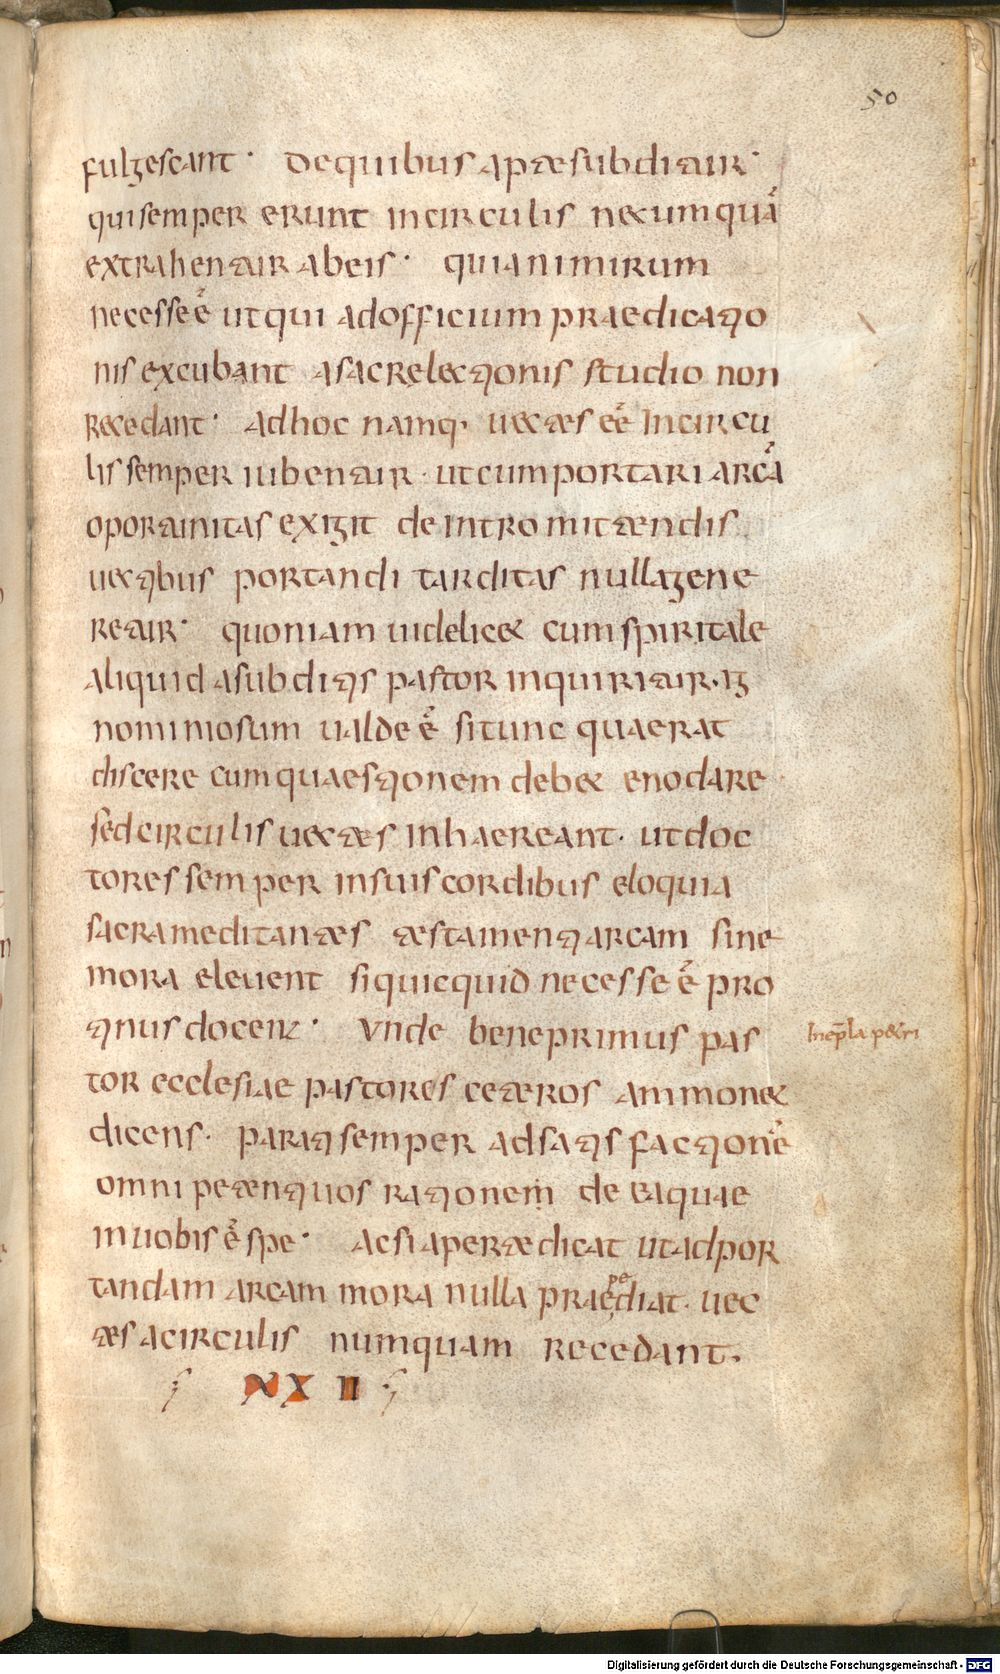 50
fulgescant · De quibus apte subditur ·
qui semper erunt in circulis nec umquā
extrahentur ab eis · quia nimirum
necesse ē ut qui ad officium praedicatio
nis excubant a sacrę lectionis studio non
recedant · Ad hoc namq· uectes eē in circu
lis semper iubentur · ut cum portari arcā
oportunitas exigit de intromittendis
uectibus portandi tarditas nulla gene
retur · quoniam uidelicet cum spiritale
aliquid a subditis pastor inquiritur · ig
nominiosum ualde ē si tunc quaerat
discere cum quaestionem debet enodare ·
sed circulis uectes inhaereant · ut doc
tores semper in suis cordibus eloquia
sacra meditantes testamenti arcam sine
mora eleuent si quicquid necesse ē pro
tinus docent · Vnde bene primus pas
tor ecclesiae pastores ceteros ammonet
dicens · parati semper ad satisfactionē
omni petenti uos rationem de ea quae
in uobis ē spe · Ac si aperte dicat ut ad por
tandam arcam mora nulla praepediat · uec
tes a circulis numquam recedant ·
XXII
In ep̄la petri
Digitalisierung gefördert durch die Deutsche Forschungsgemeinschaft - DFG